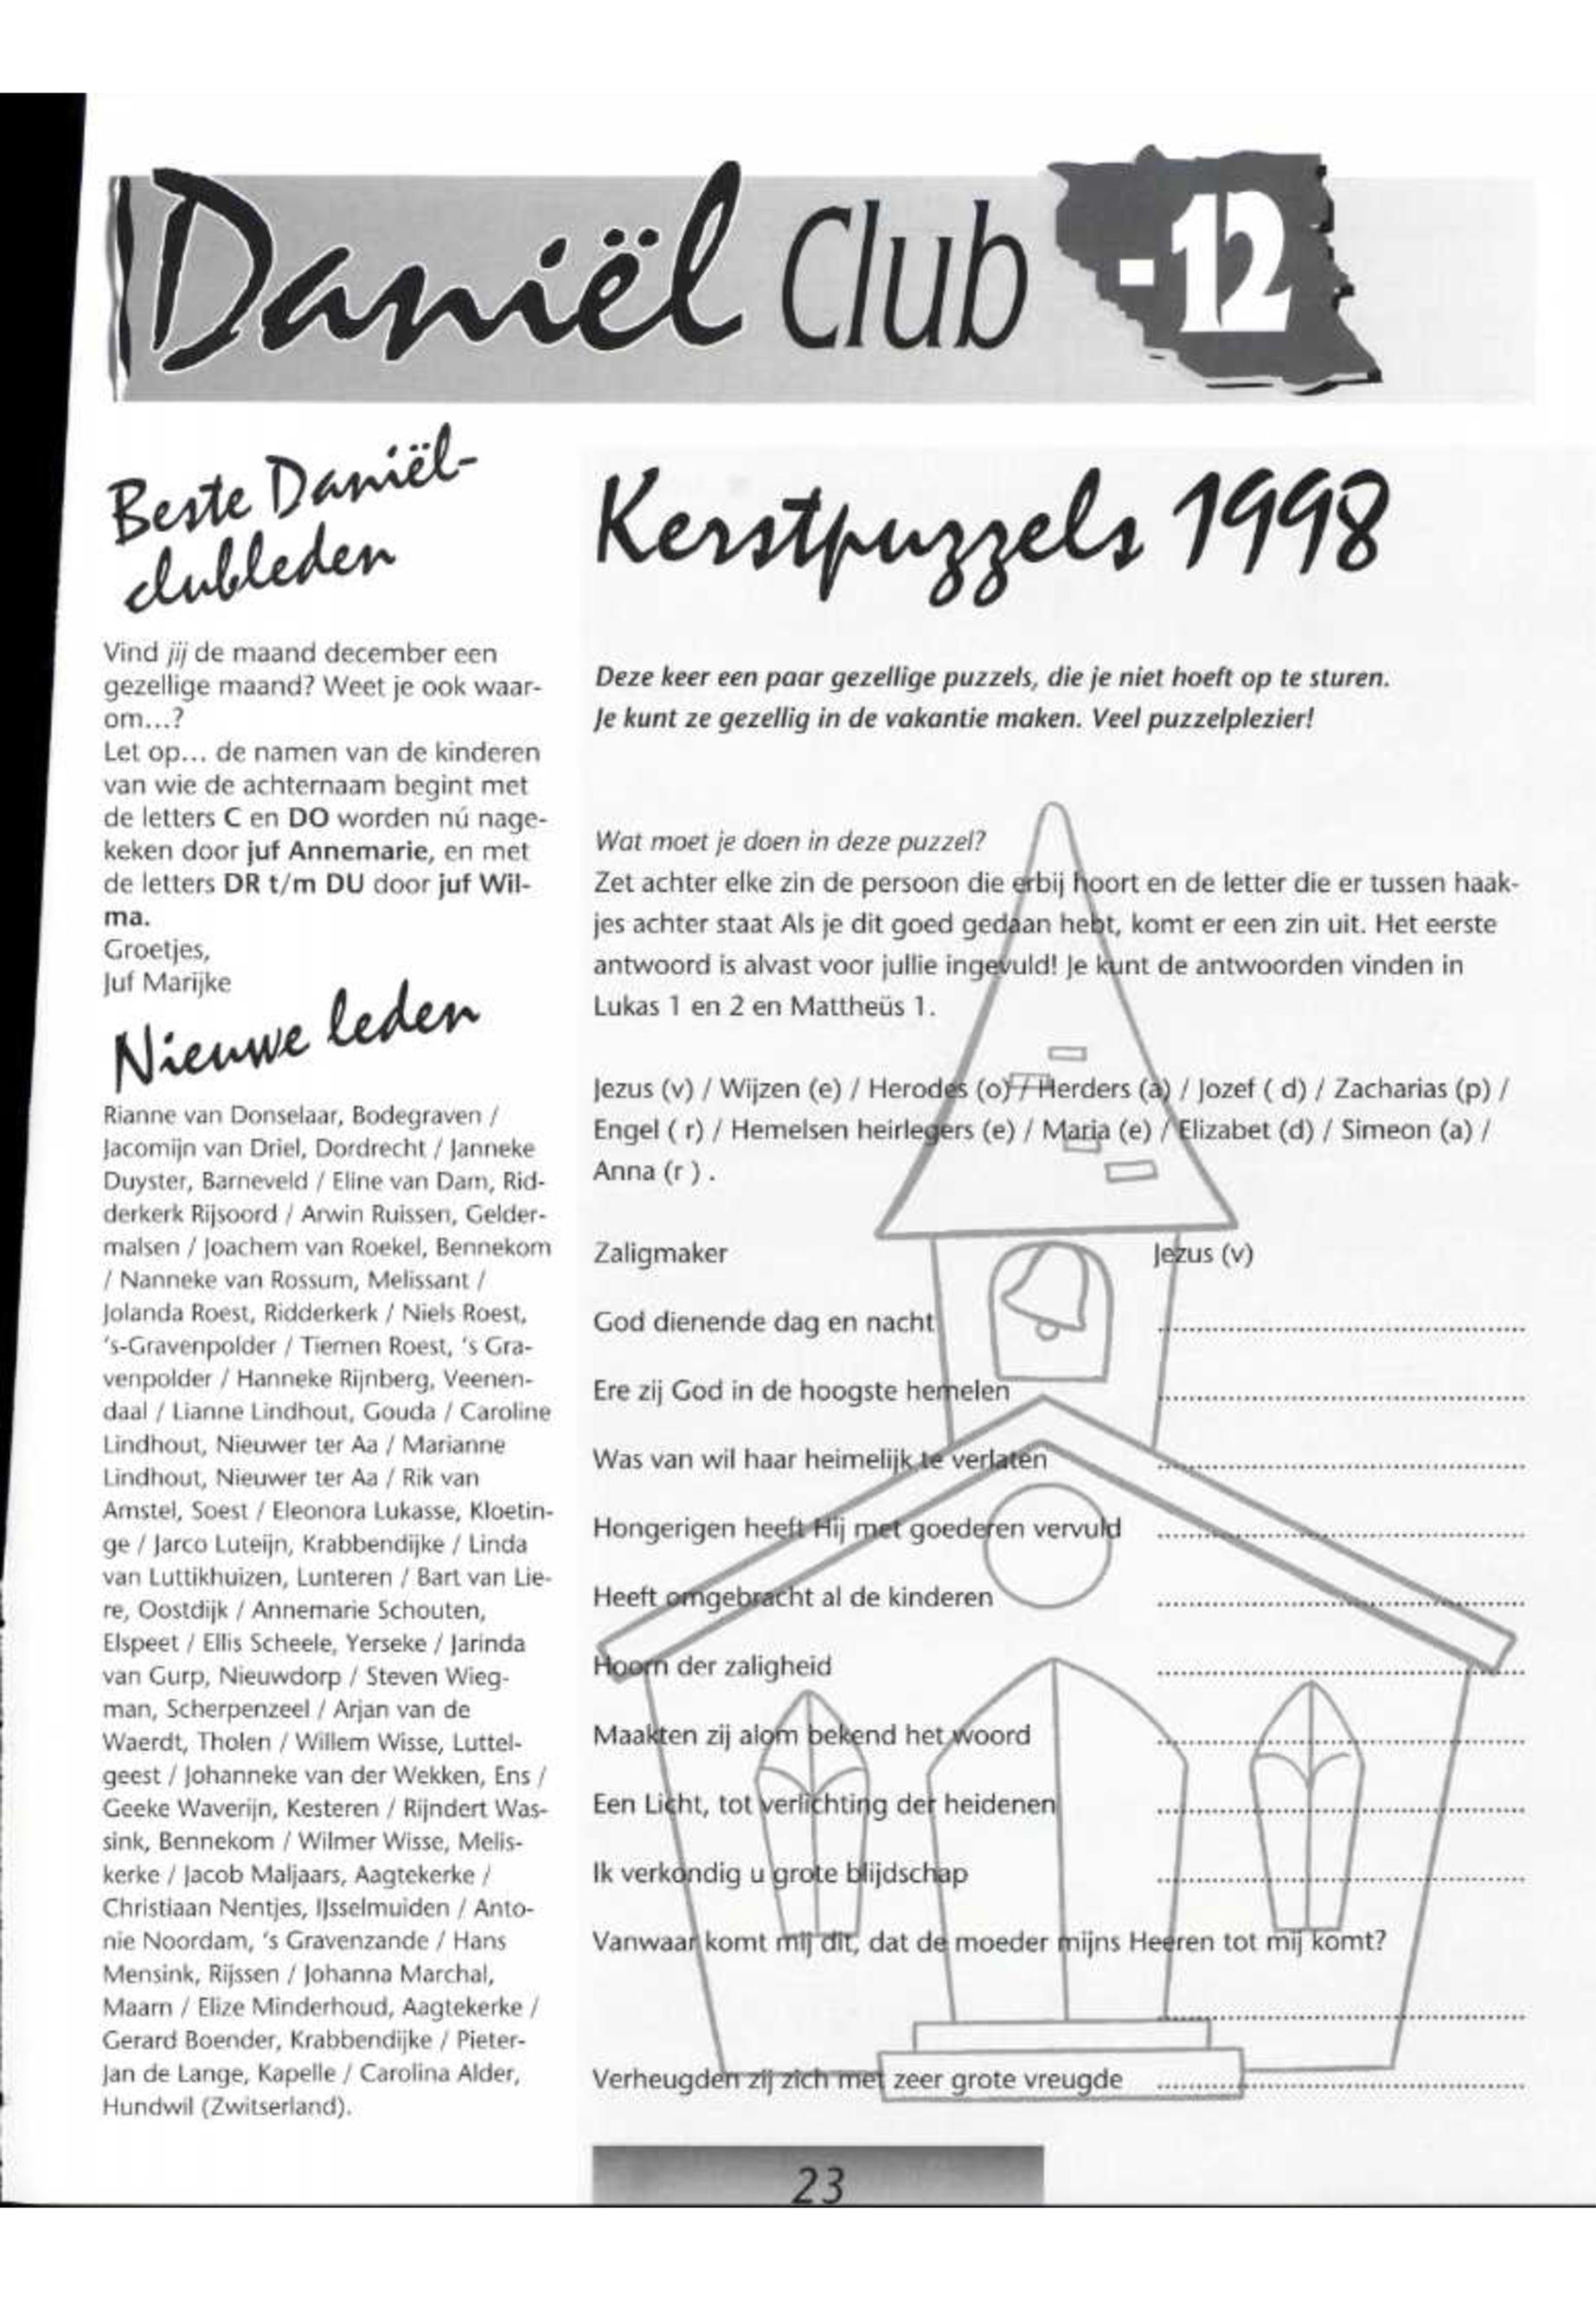 Daniël Club -12
Beste Daniël-
clubleden
Vind jij de maand december een
gezellige maand? Weet je ook waar-
om...?
Let op... de namen van de kinderen
van wie de achternaam begint met
de letters C en DO worden nú nage-
keken door juf Annemarie, en met
de letters DR t/m DU door juf Wil-
ma.
Groetjes,
Juf Marijke
Nieuwe leden
Rianne van Donselaar, Bodegraven /
Jacomijn van Driel, Dordrecht / Janneke
Duyster, Barneveld / Eline van Dam, Rid-
derkerk Rijsoord / Arwin Ruissen, Gelder-
malsen / Joachem van Roekel, Bennekom
/ Nanneke van Rossum, Melissant /
Jolanda Roest, Ridderkerk / Niels Roest,
's-Gravenpolder / Tiemen Roest, 's Gra-
venpolder / Hanneke Rijnberg, Veenen-
daal / Lianne Lindhout, Gouda / Caroline
Lindhout, Nieuwer ter Aa / Marianne
Lindhout, Nieuwer ter Aa / Rik van
Amstel, Soest / Eleonora Lukasse, Kloetin-
ge / Jarco Luteijn, Krabbendijke / Linda
van Luttikhuizen, Lunteren / Bart van Lie-
re, Oostdijk / Annemarie Schouten,
Elspeet / Ellis Scheele, Yerseke / Jarinda
van Gurp, Nieuwdorp / Steven Wieg-
man, Scherpenzeel / Arjan van de
Waerdt, Tholen / Willem Wisse, Luttel-
geest / Johanneke van der Wekken, Ens /
Geeke Waverijn, Kesteren / Rijndert Was-
sink, Bennekom / Wilmer Wisse, Melis-
kerke / Jacob Maljaars, Aagtekerke /
Christiaan Nentjes, IJsselmuiden / Anto-
nie Noordam, 's Gravenzande / Hans
Mensink, Rijssen / Johanna Marchal,
Maarn / Elize Minderhoud, Aagtekerke /
Gerard Boender, Krabbendijke / Pieter-
Jan de Lange, Kapelle / Carolina Alder,
Hundwil (Zwitserland).
Kerstpuzzels 1998
Deze keer een paar gezellige puzzels, die je niet hoeft op te sturen.
Je kunt ze gezellig in de vakantie maken. Veel puzzelplezier!
Wat moet je doen in deze puzzel?
Zet achter elke zin de persoon die erbij hoort en de letter die er tussen haak-
jes achter staat Als je dit goed gedaan hebt, komt er een zin uit. Het eerste
antwoord is alvast voor jullie ingevuld! Je kunt de antwoorden vinden in
Lukas 1 en 2 en Mattheüs 1.
Jezus (v) / Wijzen (e) / Herodes (o) / Herders (a) / Jozef ( d) / Zacharias (p) /
Engel ( r) / Hemelsen heirlegers (e) / Maria (e) / Elizabet (d) / Simeon (a) /
Anna (r ) .
Zaligmaker Jezus (v)
God dienende dag en nacht ..........
Ere zij God in de hoogste hemelen ..........
Was van wil haar heimelijk te verlaten ..........
Hongerigen heeft Hij met goederen vervuld ..........
Heeft omgebracht al de kinderen ..........
Hoorn der zaligheid ..........
Maakten zij alom bekend het woord ..........
Een Licht, tot verlichting der heidenen ..........
Ik verkondig u grote blijdschap ..........
Vanwaar komt mij dit, dat de moeder mijns Heeren tot mij komt?
..........
Verheugden zij zich met zeer grote vreugde ..........
23